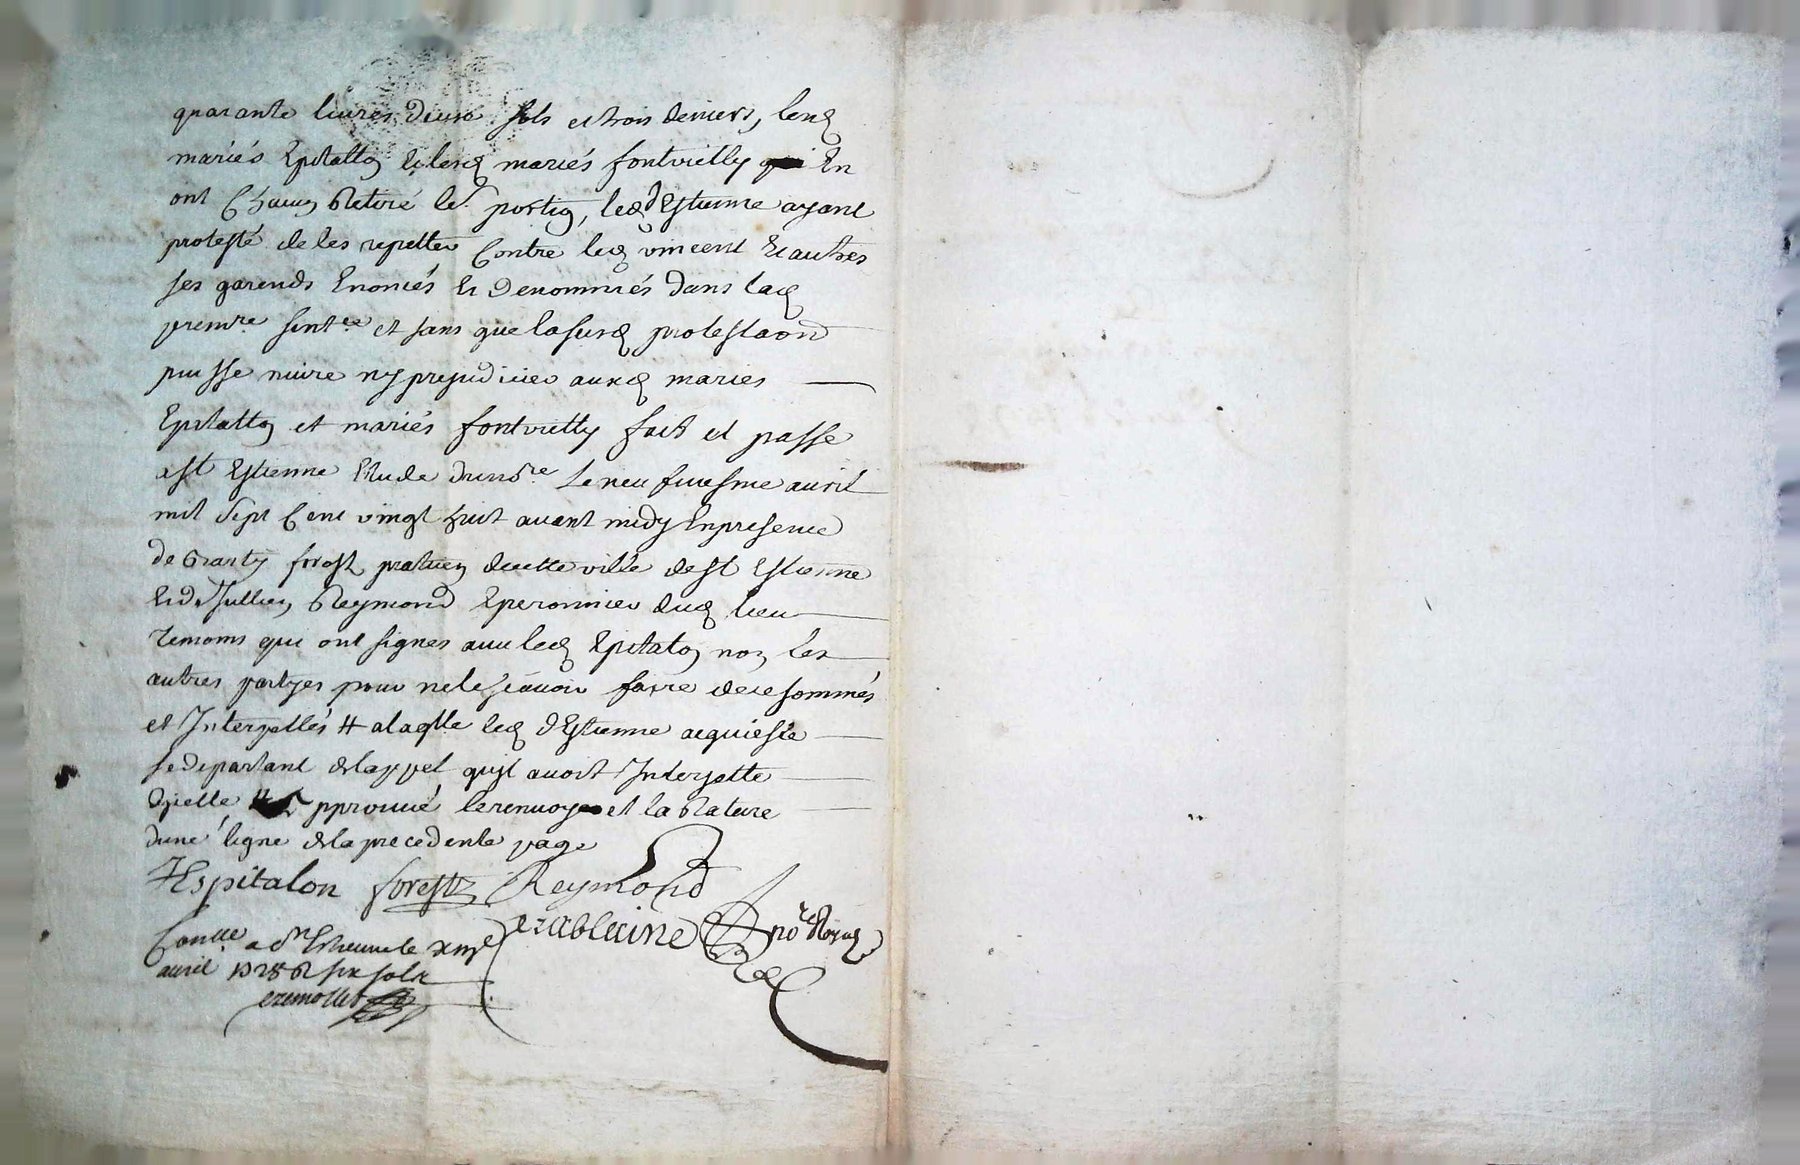 quarante livres deux sols et trois deniers, lesd
mariés Epitallon & lesd mariés fontvielly En
ont Chacun Retiré le portion, led dEstienne ayant
protesté de les repetter Contre led vincent Et autres
ses garends Enoncés Et Denommés dans lad
premre sentce et sans que lasusd protestaon
puisse nuire ny prejudicier auxd mariés
Epitallon et mariés fontvielly fait et passé
a St Estienne Etude du nore le neufviesme avril
mil sept Cent vingt huit avant midy Enpresence
de forest praticien decette ville de St Estienne
Et de Jullien Reymond Eperonnier dud lieu
Temoins qui ont signés avec led Epitalon non les
autres partyes pour nelesçavoir faire dece sommés
et Interpellés # alaqlle led dEstienne acquiesce
sedepartant delappel quil avoit Interjetté
dicelle # approuvé lerenvoy et la Rature
dune ligne dela precedente page
Espitalon forest Reymond
nore Royal
Conlle a St Estienne le
avril 1728 R six sols